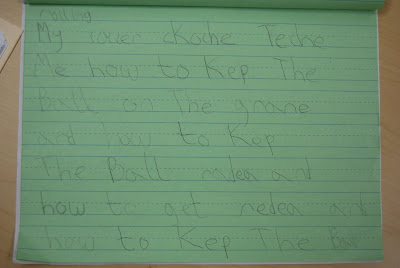 My cover ckoche Teche
Me how to Kep The
Ball on The grane
and how to Kep
The Ball and
how to get redea and
how to Kep The Bar